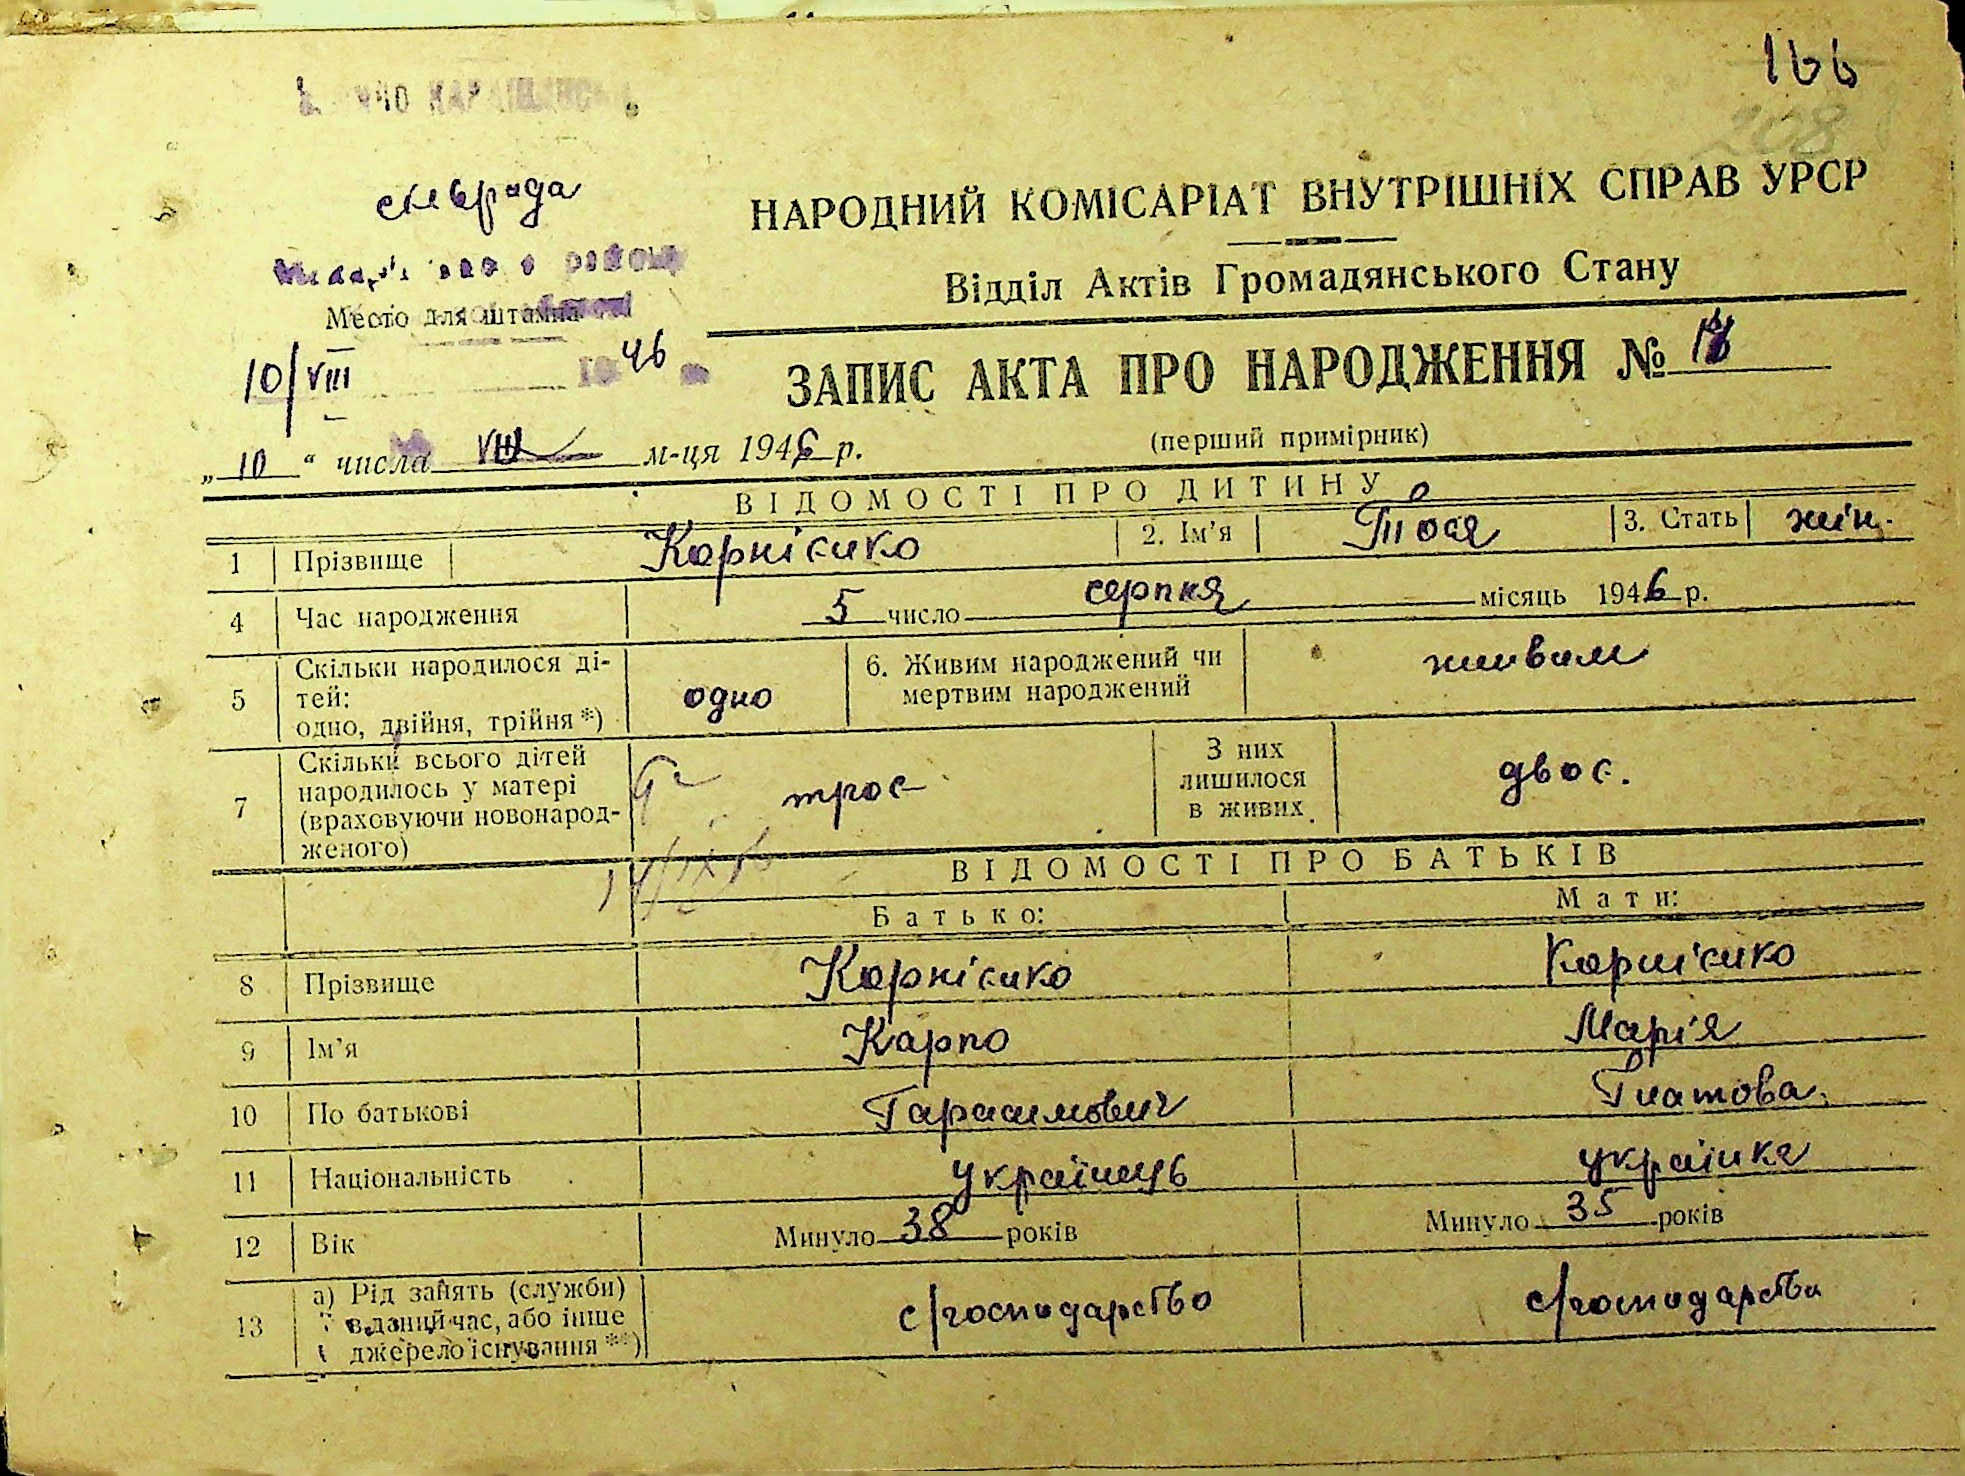 166
208
сільрада
НАРОДНИЙ КОМІСАРІАТ ВНУТРІШНІХ СПРАВ УРСР
Відділ Актів Громадянського Стану
Место для штампа
10/VIII 1946
ЗАПИС АКТА ПРО НАРОДЖЕННЯ №
(перший примірник)
„10“ числа VIII м-ця 1946 р.
ВІДОМОСТІ ПРО ДИТИНУ
1 Прізвище Корнієнко 2. Ім’я Тося 3. Стать жін.
4 Час народження 5 число серпня місяць 1946 р.
5 Скільки народилося ді-
тей:
одно, двійня, трійня *) одно 6. Живим народжений чи
мертвим народжений живим
7 Скільки всього дітей
народилось у матері
(враховуючи новонарод-
женого) троє З них
лишилося
в живих двоє.
ВІДОМОСТІ ПРО БАТЬКІВ
Батько: Мати:
8 Прізвище Корнієнко Корнієнко
9 Ім’я Карпо Марія
10 По батькові Гарасимович Гнатова
11 Національність українець українка
12 Вік Минуло 38 років Минуло 35 років
13 а) Рід занять (служби)
в даний час, або інше
джерело існування **) с/господарство с/господарство